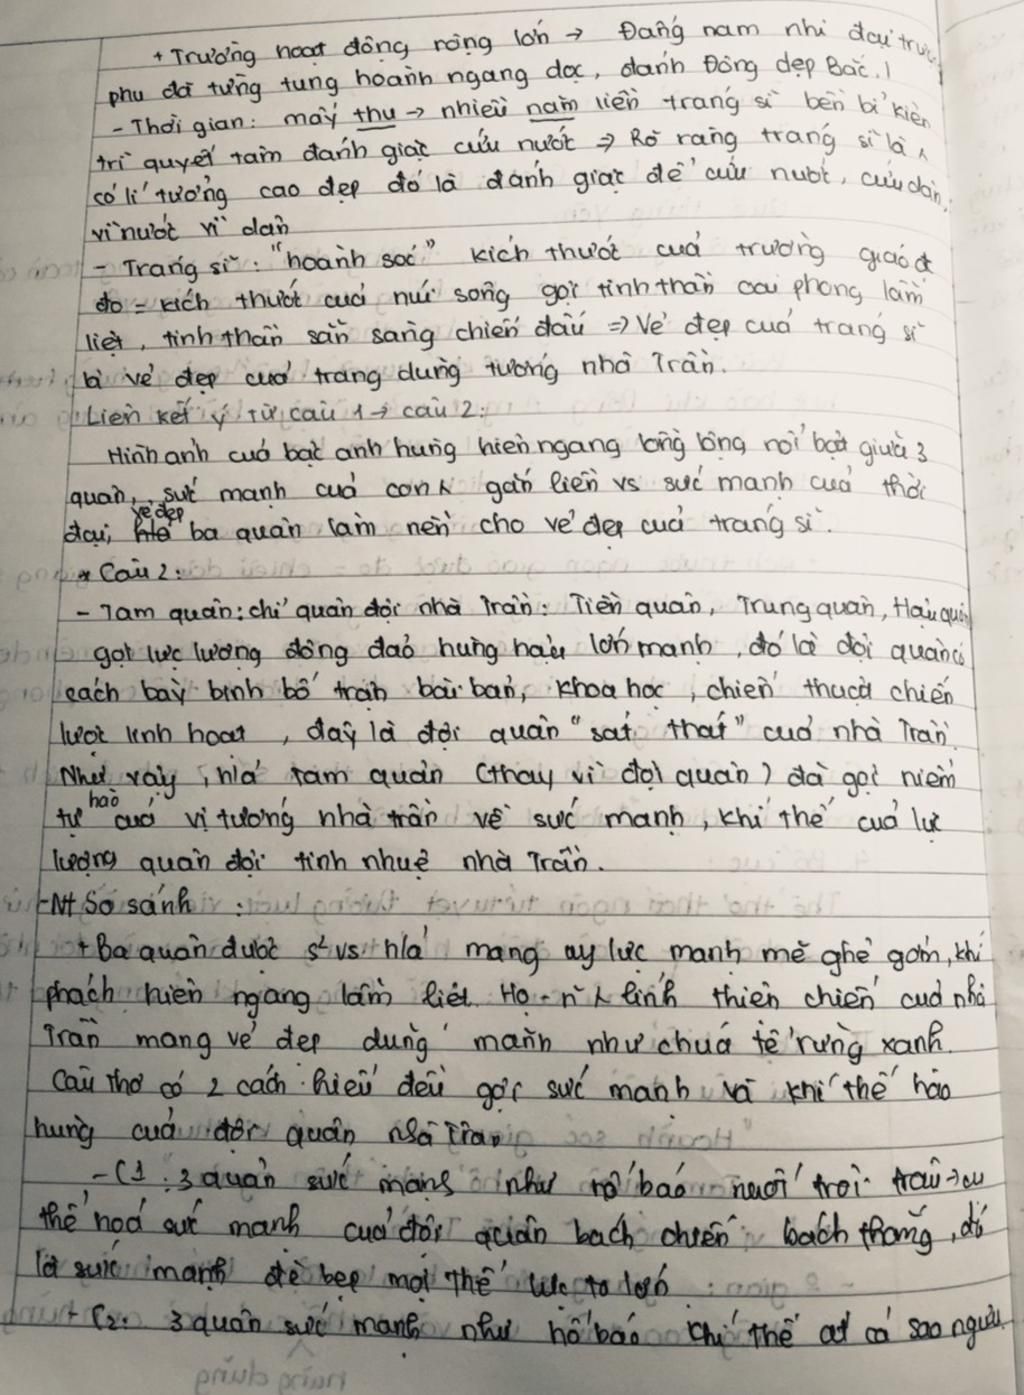 + Trường hoạt động rộng lớn → Đấng nam nhi đại trượng
phu đã từng tung hoành ngang dọc, đánh Đông dẹp Bắc.
- Thời gian: mấy thu → nhiều năm liền tráng sĩ bền bỉ kiên
trì quyết tâm đánh giặc cứu nước ⇒ Rõ ràng tráng sĩ là
có lí tưởng cao đẹp đó là đánh giặc để cứu nước, cứu dân,
vì nước vì dân
- Tráng sĩ: "hoành sóc" kích thước của trường giáo đ
đo = kích thước của núi sông gợi tinh thần oai phong lẫm
liệt, tinh thần sẵn sàng chiến đấu ⇒ Vẻ đẹp của tráng sĩ
là vẻ đẹp của trang dũng tướng nhà Trần.
Liên kết ý từ câu 1 → câu 2:
Hình ảnh của bậc anh hùng hiên ngang lồng lộng nổi bật giữa 3
quân, sức mạnh của con gắn liền vs sức mạnh của thời
đại, vẻ đẹp ba quân làm nền cho vẻ đẹp của tráng sĩ.
* Câu 2:
- Tam quân: chỉ quân đội nhà Trần: Tiền quân, Trung quân, Hậu quân
gợi lực lượng đông đảo hùng hậu lớn mạnh, đó là đội quân có
cách bày binh bố trận bài bản, khoa học, chiến thuật chiến
lược linh hoạt, đây là đội quân "sát thát" của nhà Trần.
Như vậy, h/ả tam quân (thay vì đội quân) đã gợi niềm
tự hào của vị tướng nhà trần về sức mạnh, khí thế của lực
lượng quân đội tinh nhuệ nhà Trần.
- Nt So sánh:
+ Ba quân được s² vs h/ả mang uy lực mạnh mẽ ghê gớm, khí
phách hiên ngang lẫm liệt. Họ - lính thiện chiến của nhà
Trần mang vẻ đẹp dũng mãnh như chúa tể rừng xanh.
Câu thơ có 2 cách hiểu đều gợi sức mạnh và khí thế hào
hùng của đội quân nhà Trần
- C1: 3 quân sức mạnh như hổ báo nuốt trôi trâu → cụ
thể hoá sức mạnh của đội quân bách chiến bách thắng, đó
là sức mạnh đè bẹp mọi thế lực to lớn
+ C2: 3 quân sức mạnh như hổ báo khí thế át cả sao ngưu.